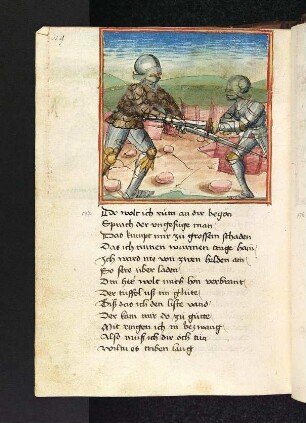 Do wolt ich ritn an die begon
Sprach der ongefüge man
Das kumpt mir zu grossem schaden
Das ich minen wurmen truge han
Ich ward nie von zwen helden an
So sere über laden
Din her wolt mich hon verbrant
Der tüffel uß im glüte
Biß das ich den liste vand
Der kam mir do zu gütte
Mit ringen ich in bezwang
Also muß ich dir och tün
wiltu es triben lang